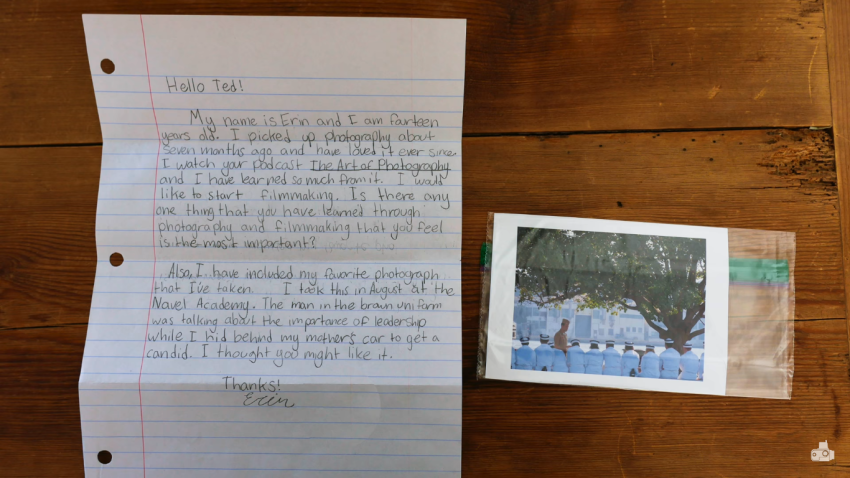 Hello Ted!
My name is Erin and I am fourteen
years old. I picked up photography about
seven months ago and have loved it ever since.
I watch your podcast The Art of Photography
and I have learned so much from it. I would
like to start filmmaking. Is there any
one thing that you have learned through
photography and filmmaking that you feel
is the most important?
Also, I have included my favorite photograph
that I've taken. I took this in August at the
Navel Academy. The man in the braun uniform
was talking about the importance of leadership
while I hid behind my mother's car to get a
candid. I thought you might like it.
Thanks!
Erin